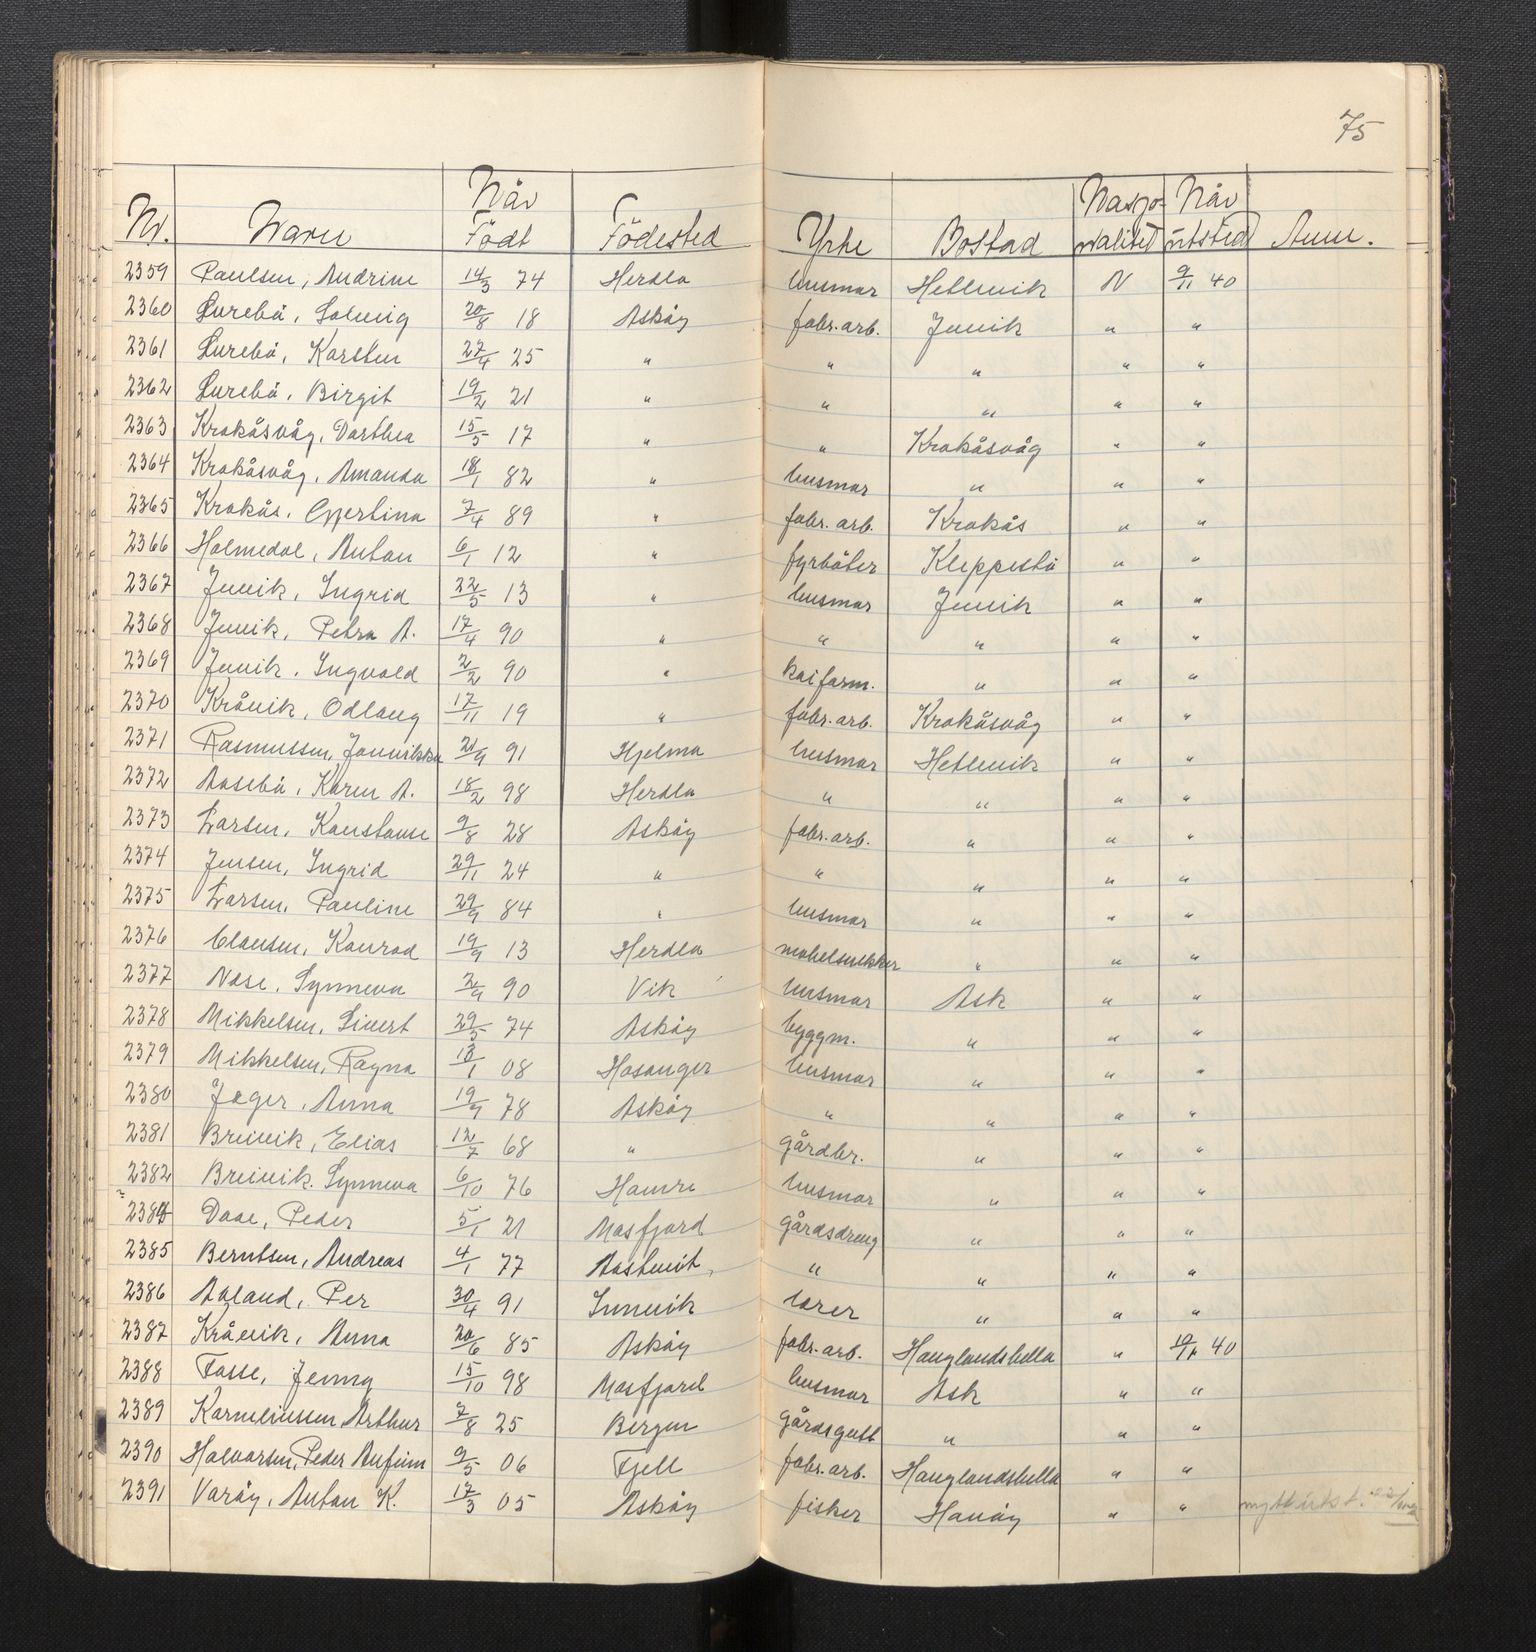 75
Nr. Navn Når Født Fødested Yrke Bostad Nasjonalitet Når utsted Anm.
2359 Paulsen, Andrine 14/3 74 Herdla husmor Hetlevik N 9/11 40
2360 Lurebø, Solveig 20/8 18 Askøy fabr. arb. Juvik " "
2361 Lurebø, Karsten 27/4 25 " " " " "
2362 Lurebø, Birgit 19/2 21 " " " " "
2363 Krokåsvåg, Dorthea 15/5 17 " " Krokåsvåg " "
2364 Krokåsvåg, Amanda 18/1 82 " husmor " " "
2365 Krokås, Gjertina 7/4 89 " fabr. arb. Krokås " "
2366 Holmedal, Anton 6/1 12 " fyrbøter Kleppestø " "
2367 Juvik, Ingrid 22/5 13 " husmor Juvik " "
2368 Juvik, Petra A. 17/4 90 " " " " "
2369 Juvik, Ingvald 2/2 90 " kaiform. " " "
2370 Kråvik, Odlaug 17/11 19 " fabr. arb. Krokåsvåg " "
2371 Rasmussen, Jannikka 21/9 91 Hjelma husmor Hetlevik " "
2372 Aasebø, Karen A. 18/2 98 Herdla " " " "
2373 Larsen, Konstanse 9/8 28 Askøy fabr. arb. " " "
2374 Jensen, Ingrid 29/11 24 " " " " "
2375 Larsen, Pauline 29/9 84 " husmor " " "
2376 Clausen, Konrad 19/9 13 Herdla møbelsnekker " " "
2377 Nese, Synneva 2/9 90 Vik husmor Ask " "
2378 Mikkelsen, Sivert 29/5 74 Askøy byggm. " " "
2379 Mikkelsen, Ragna 18/1 08 Hosanger husmor " " "
2380 Jæger, Anna 19/9 78 Askøy " " " "
2381 Breivik, Elias 12/7 68 " gårdbr. " " "
2382 Breivik, Synneva 6/10 76 Hamre husmor " " "
2384 Daae, Peder 5/1 21 Masfjord gårdsdreng " " "
2385 Berntsen, Andreas 4/1 77 Aastveit " " " "
2386 Aaland, Per 30/4 91 Innvik lærer " " "
2387 Kråvik, Anna 20/6 85 Askøy fabr. arb. Hauglandshella " 19/11 40
2388 Fosse, Jenny 15/10 98 Masfjord husmor Ask " "
2389 Korneliussen, Arthur 7/8 25 Bergen gårdsgutt " " "
2390 Halvorsen, Peder Anfinn 9/5 06 Fjell fabr. arb. Hauglandshella " "
2391 Varøy, Anton K. 17/3 05 Askøy fisker Hanøy " "